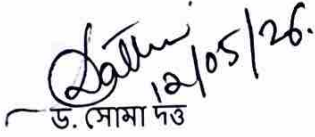 12/05/26.
ড. সোমা দত্ত